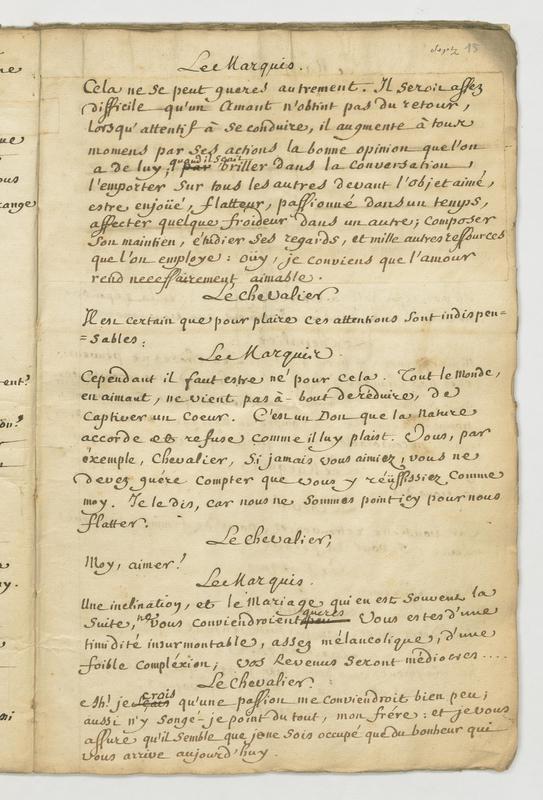 Sept 15
Le Marquis.
Cela ne se peut gueres autrement. Il seroit assez
difficile qu'un Amant n'obtint pas du retour,
lorsqu'attentif à se conduire, il augmente à tous
momens par ses actions la bonne opinion que l'on
quand il sçait
a de luy; par briller dans la Conversation,
l'emporter sur tous les autres devant l'objet aimé,
estre enjoüé, flatteur, passionné dans un temps,
affecter quelque froideur dans un autre; Composer
son maintien, etudier ses regards, et mille autres ressources
que l'on employe: oüy, je conviens que l'amour
rend necessairement aimable.
Le Chevalier.
Il est certain que pour plaire ces attentions sont indispen=
=sables:
Le Marquis.
Cependant il faut estre né pour cela. Tout le Monde,
en aimant, ne vient pas à-bout de réduire, de
Captiver un Coeur. C'est un Don que la nature
accorde et refuse comme il luy plaist. Vous, par
exemple, Chevalier, si jamais vous aimiez, vous ne
devez guére compter que vous y réüssissiez Comme
moy. Je le dis, car nous ne sommes point icy pour nous
flatter.
Le Chevalier,
Moy, aimer!
Le Marquis.
Une inclination, et le Mariage qui en est souvent la
ne gueres
suite, vous conviendroient peu Vous estes d'une
timidité insurmontable, assez mélancolique, d'une
foible Compléxion; vos Revenus seront médiocres....
Le Chevalier.
crois
Ah! je sçais qu'une passion me conviendroit bien peu;
aussi n'y songe-je point du tout, mon frére: et je vous
assure qu'il semble que je ne sois occupé que du bonheur qui
vous arrive aujourd'huy.